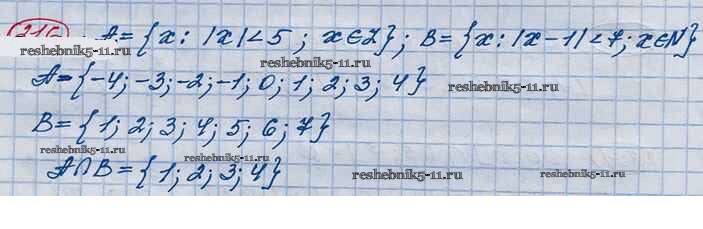 216 A={x: |x|<5; x∈Z}; B={x: |x-1|<7; x∈N}
reshebnik5-11.ru
A={-4; -3; -2; -1; 0; 1; 2; 3; 4}
reshebnik5-11.ru
B={1; 2; 3; 4; 5; 6; 7}
reshebnik5-11.ru
A∩B={1; 2; 3; 4}
reshebnik5-11.ru reshebnik5-11.ru